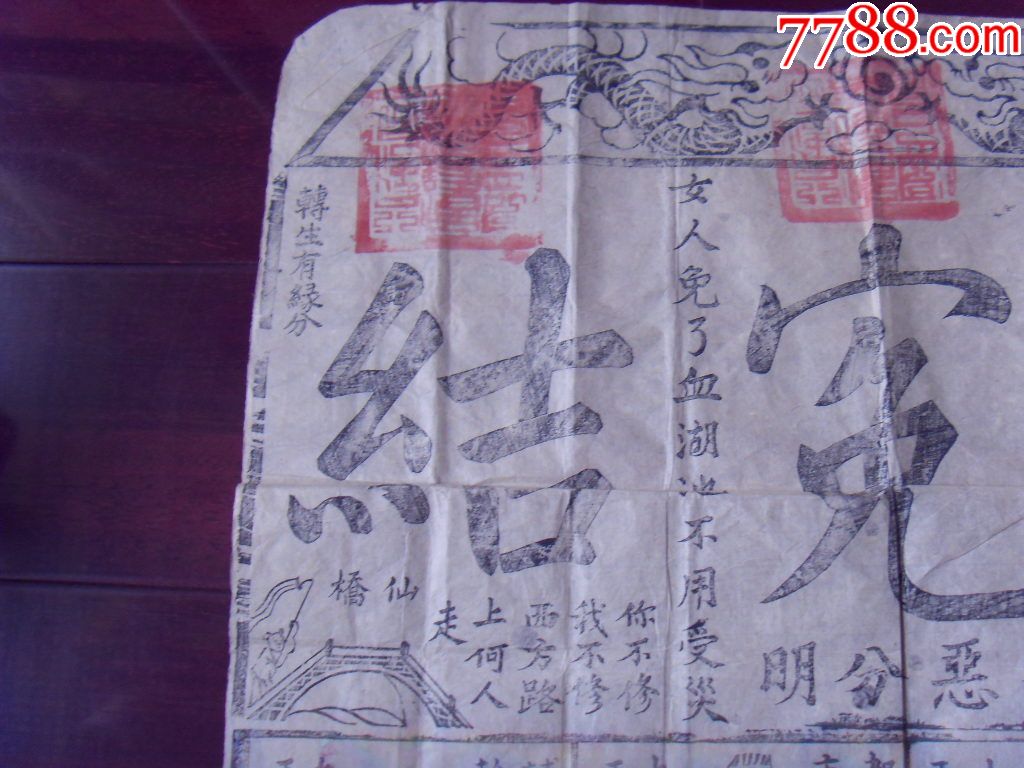 7788.com
寃結
恶分明
女人免了血湖池不用受災
你不修
我不修
西方路
上何人
走
仙橋
轉生有緣分